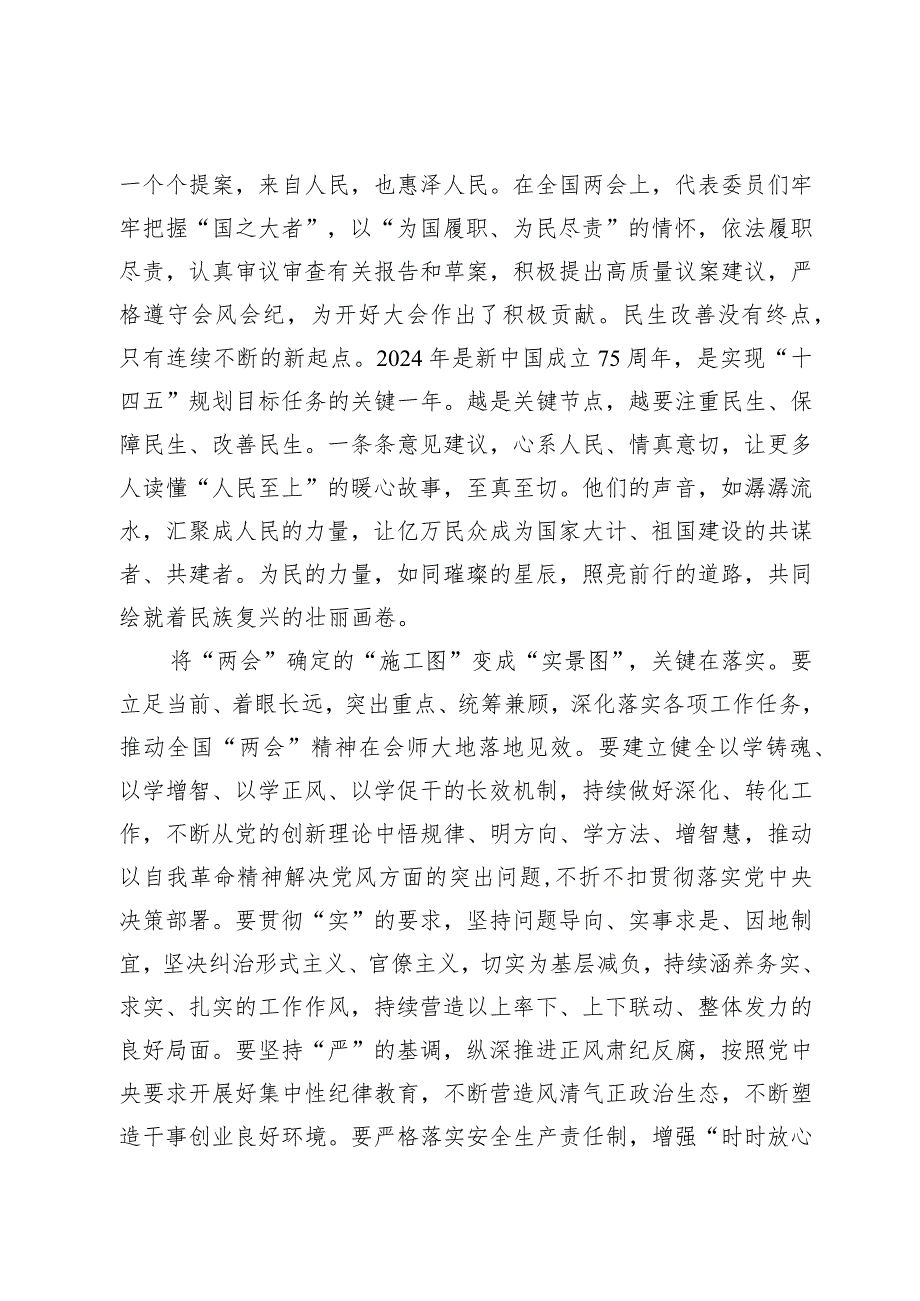 一个个提案，来自人民，也惠泽人民。在全国两会上，代表委员们牢
牢把握“国之大者”，以“为国履职、为民尽责”的情怀，依法履职
尽责，认真审议审查有关报告和草案，积极提出高质量议案建议，严
格遵守会风会纪，为开好大会作出了积极贡献。民生改善没有终点，
只有连续不断的新起点。2024年是新中国成立75周年，是实现“十
四五”规划目标任务的关键一年。越是关键节点，越要注重民生、保
障民生、改善民生。一条条意见建议，心系人民、情真意切，让更多
人读懂“人民至上”的暖心故事，至真至切。他们的声音，如潺潺流
水，汇聚成人民的力量，让亿万民众成为国家大计、祖国建设的共谋
者、共建者。为民的力量，如同璀璨的星辰，照亮前行的道路，共同
绘就着民族复兴的壮丽画卷。
将“两会”确定的“施工图”变成“实景图”，关键在落实。要
立足当前、着眼长远，突出重点、统筹兼顾，深化落实各项工作任务，
推动全国“两会”精神在会师大地落地见效。要建立健全以学铸魂、
以学增智、以学正风、以学促干的长效机制，持续做好深化、转化工
作，不断从党的创新理论中悟规律、明方向、学方法、增智慧，推动
以自我革命精神解决党风方面的突出问题,不折不扣贯彻落实党中央
决策部署。要贯彻“实”的要求，坚持问题导向、实事求是、因地制
宜，坚决纠治形式主义、官僚主义，切实为基层减负，持续涵养务实、
求实、扎实的工作作风，持续营造以上率下、上下联动、整体发力的
良好局面。要坚持“严”的基调，纵深推进正风肃纪反腐，按照党中
央要求开展好集中性纪律教育，不断营造风清气正政治生态，不断塑
造干事创业良好环境。要严格落实安全生产责任制，增强“时时放心